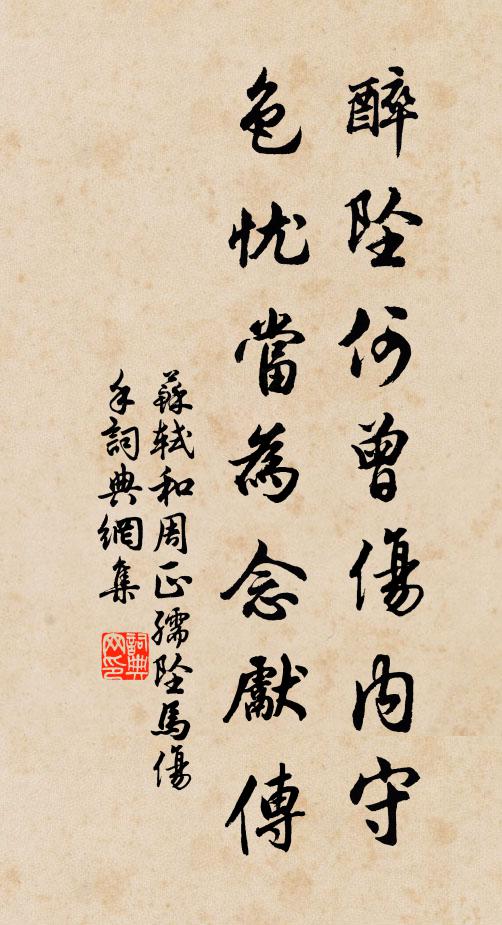 醉墜何曾傷内守
色忧當為念獻傳
蘇軾和周正孺墜馬傷
手詞典網集
詞典网印